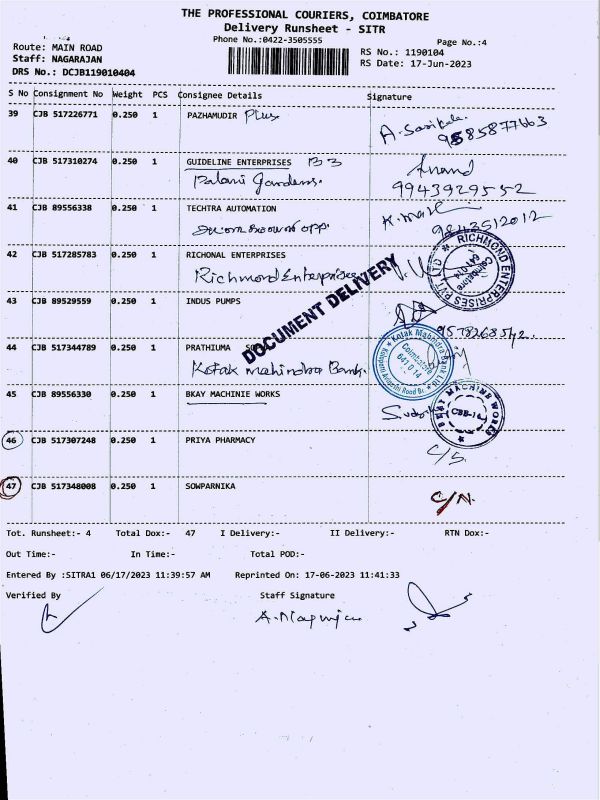 THE PROFESSIONAL COURIERS, COIMBATORE
Delivery Runsheet - SITR
Phone No.:0422-3505555
Page No.:4
Route: MAIN ROAD
RS No.: 1190104
Staff: NAGARAJAN
RS Date: 17-Jun-2023
DRS No.: DCJB119010404
S No Consignment No Weight PCS Consignee Details Signature
39 CJB 517226771 0.250 1 PAZHAMUDIR Plus
A. Sasikala
40 CJB 517310274 0.250 1 GUIDELINE ENTERPRISES B3
Anand
Palani Gardens.
9943929552
41 CJB 89556338 0.250 1 TECHTRA AUTOMATION
opp.
9843512012
42 CJB 517285783 0.250 1 RICHONAL ENTERPRISES
Richmond Enterprises
RICHMOND ENTERPRISES PVT LTD
Coimbatore
641 014
DOCUMENT DELIVERY
43 CJB 89529559 0.250 1 INDUS PUMPS
44 CJB 517344789 0.250 1 PRATHIUMA
Kotak mahindra Bank.
Kotak Mahindra Bank Ltd
Coimbatore
641 014
45 CJB 89556330 0.250 1 BKAY MACHINIE WORKS
BKAY MACHINE WORKS
CBE-14
46 CJB 517307248 0.250 1 PRIYA PHARMACY
C/S.
47 CJB 517348008 0.250 1 SOWPARNIKA
C/N.
Tot. Runsheet:- 4 Total Dox:- 47 I Delivery:- II Delivery:- RTN Dox:-
Out Time:- In Time:- Total POD:-
Entered By :SITRA1 06/17/2023 11:39:57 AM Reprinted On: 17-06-2023 11:41:33
Verified By Staff Signature